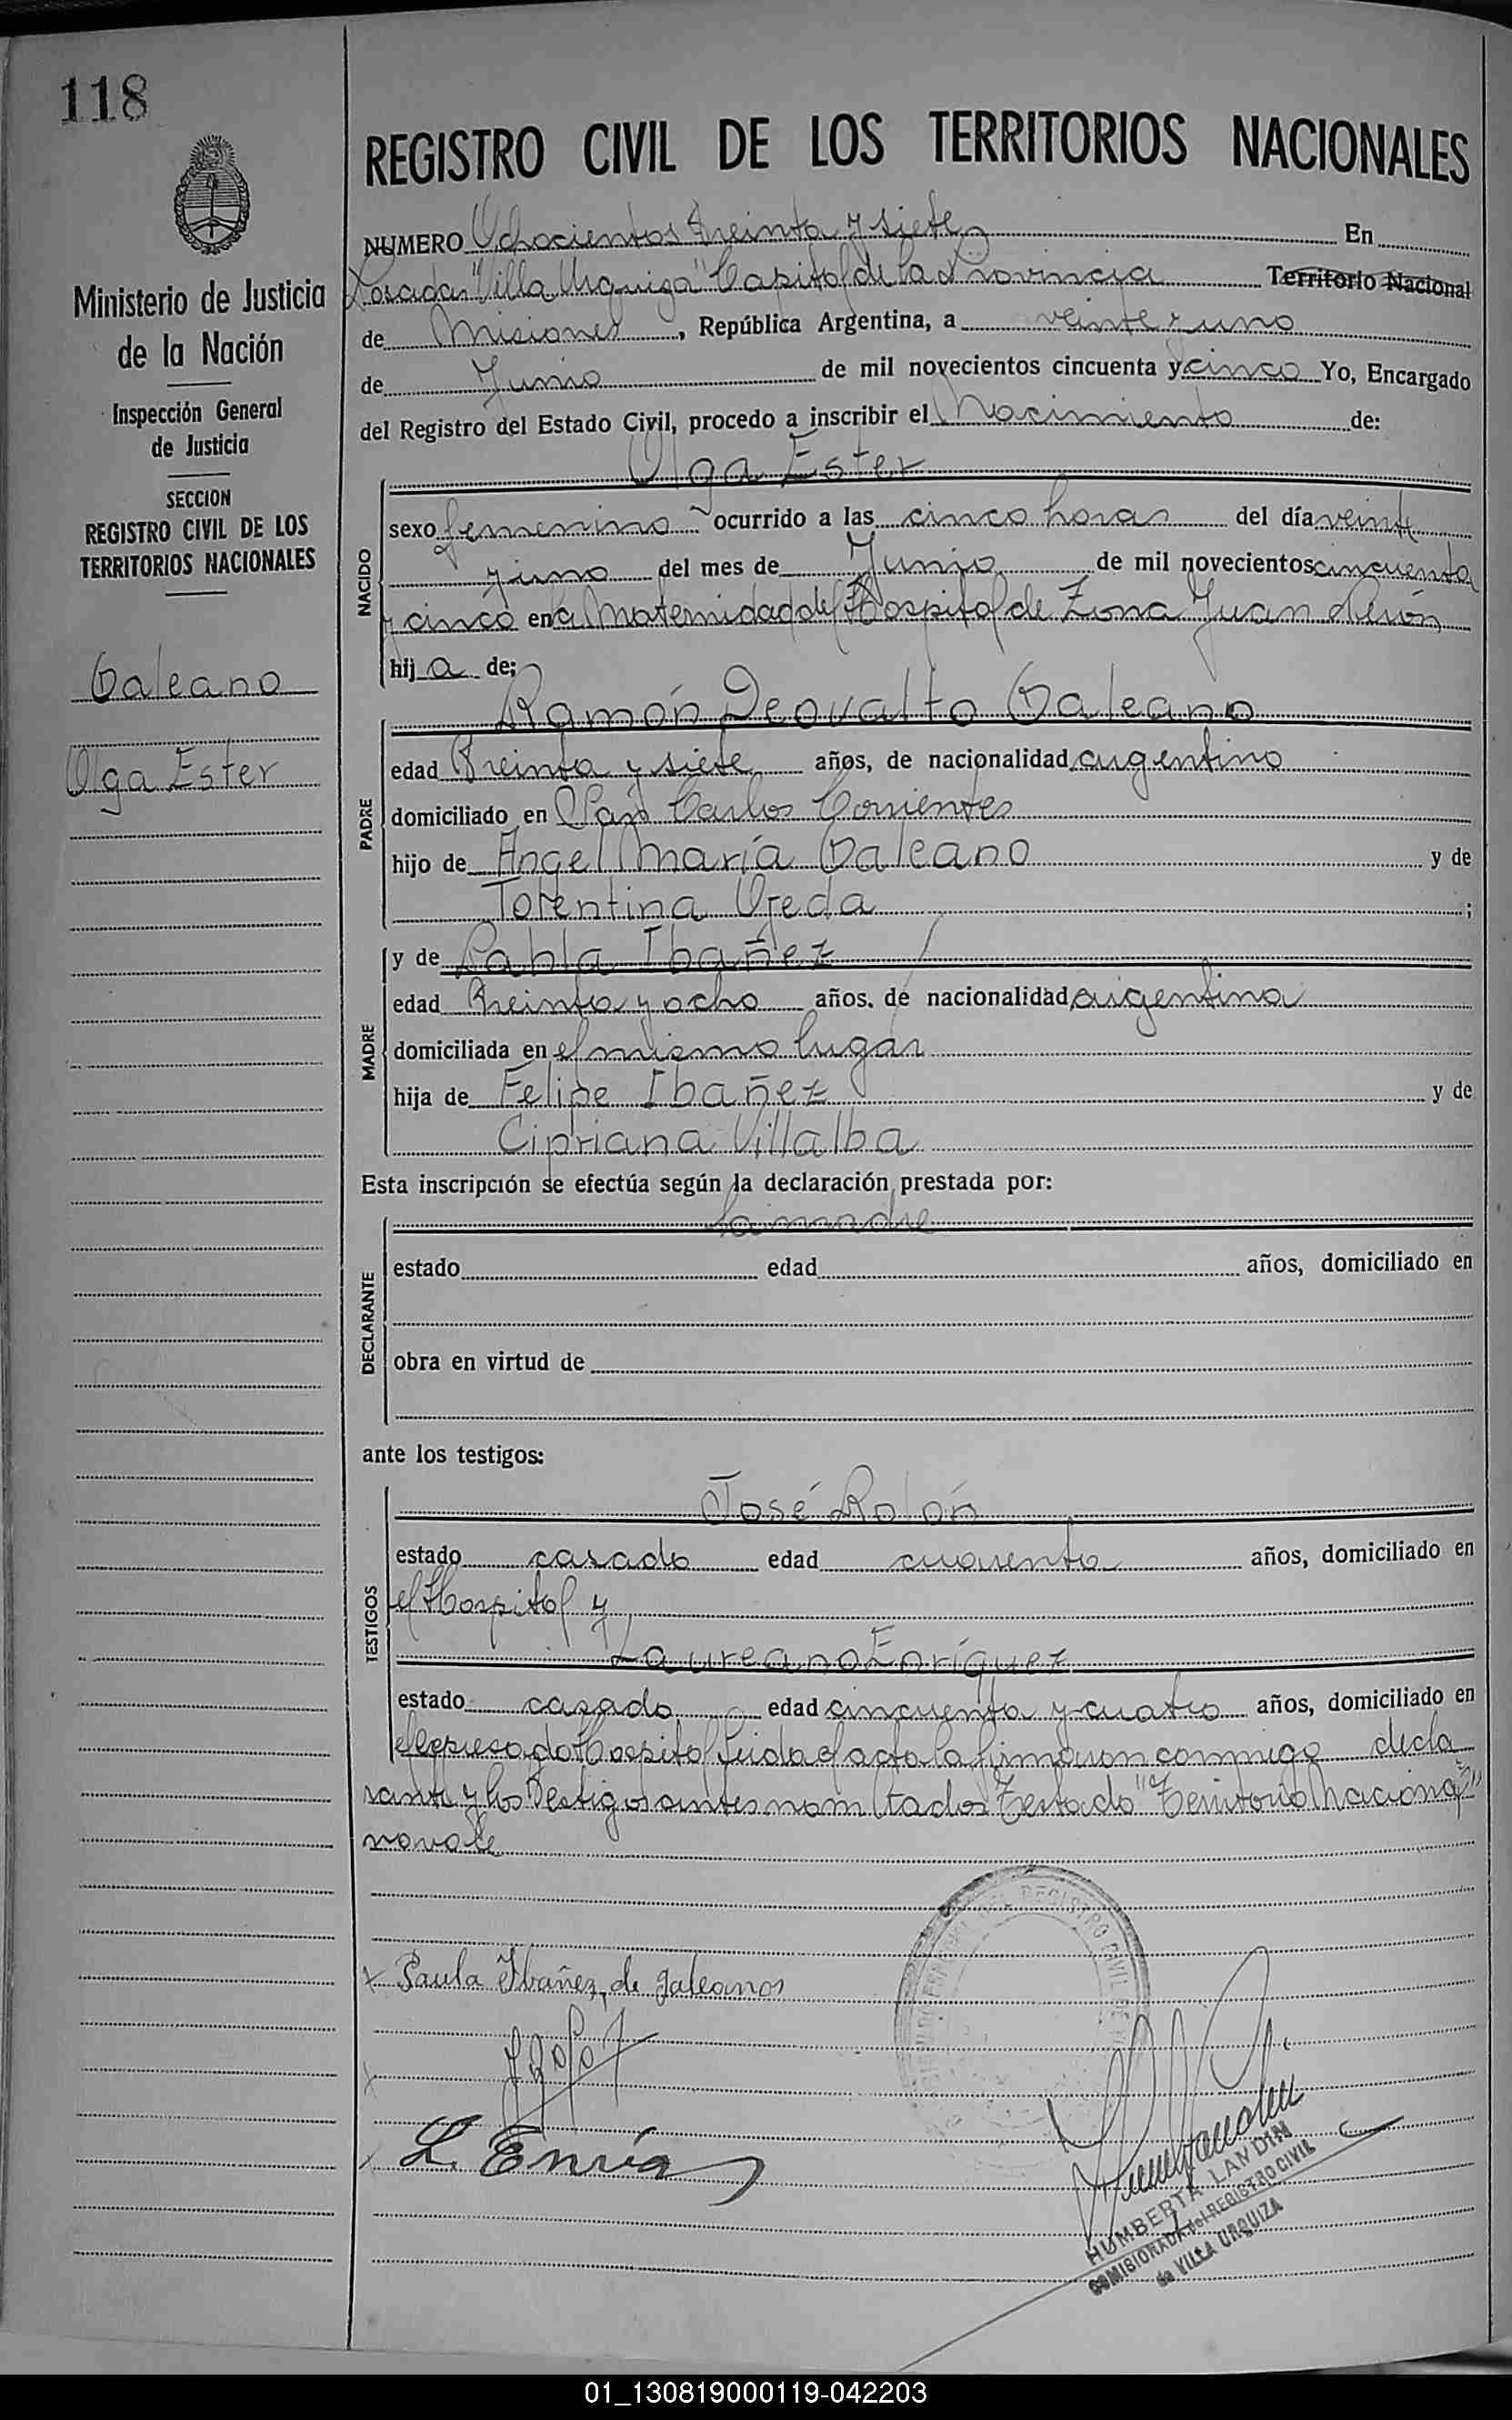 118
Ministerio de Justicia
de la Nación
Inspección General
de Justicia
SECCION
REGISTRO CIVIL DE LOS
TERRITORIOS NACIONALES
Galeano
Olga Ester
REGISTRO CIVIL DE LOS TERRITORIOS NACIONALES
NUMERO Ochocientos treinta y siete En
Posadas "Villa Urquiza" Capital de la Provincia Territorio Nacional
de Misiones, República Argentina, a veinte y uno
de Junio de mil novecientos cincuenta y cinco Yo, Encargado
del Registro del Estado Civil, procedo a inscribir el Nacimiento de:
NACIDO
Olga Ester
sexo femenino ocurrido a las cinco horas del día veinte
y uno del mes de Junio de mil novecientos cincuenta
y cinco en la Maternidad del Hospital de Zona Juan Perón
hij a de;
PADRE
Ramón Deovalto Galeano
edad treinta y siete años, de nacionalidad argentino
domiciliado en San Carlos Corrientes
hijo de Angel María Galeano y de
Tolentina Ojeda ;
MADRE
y de Pabla Ibañez
edad treinta y ocho años. de nacionalidad argentina
domiciliada en el mismo lugar
hija de Felipe Ibañez y de
Cipriana Villalba
Esta inscripción se efectúa según la declaración prestada por:
DECLARANTE
la madre
estado edad años, domiciliado en
obra en virtud de
ante los testigos:
TESTIGOS
José Rolón
estado casado edad cuarenta años, domiciliado en
el Hospital y
Laureano Enríquez
estado casado edad cincuenta y cuatro años, domiciliado en
el expresado Hospital Leida el acta la firmaron conmigo decla
rante y los testigos antes nombrados Testado "Territorio Nacional"
no vale
x Paula Ibañez, de galeanos
L. Enriq
REGISTRO CIVIL DE
HUMBERTA LANDIN
COMISIONADA del REGISTRO CIVIL
de VILLA URQUIZA
01_130819000119-042203